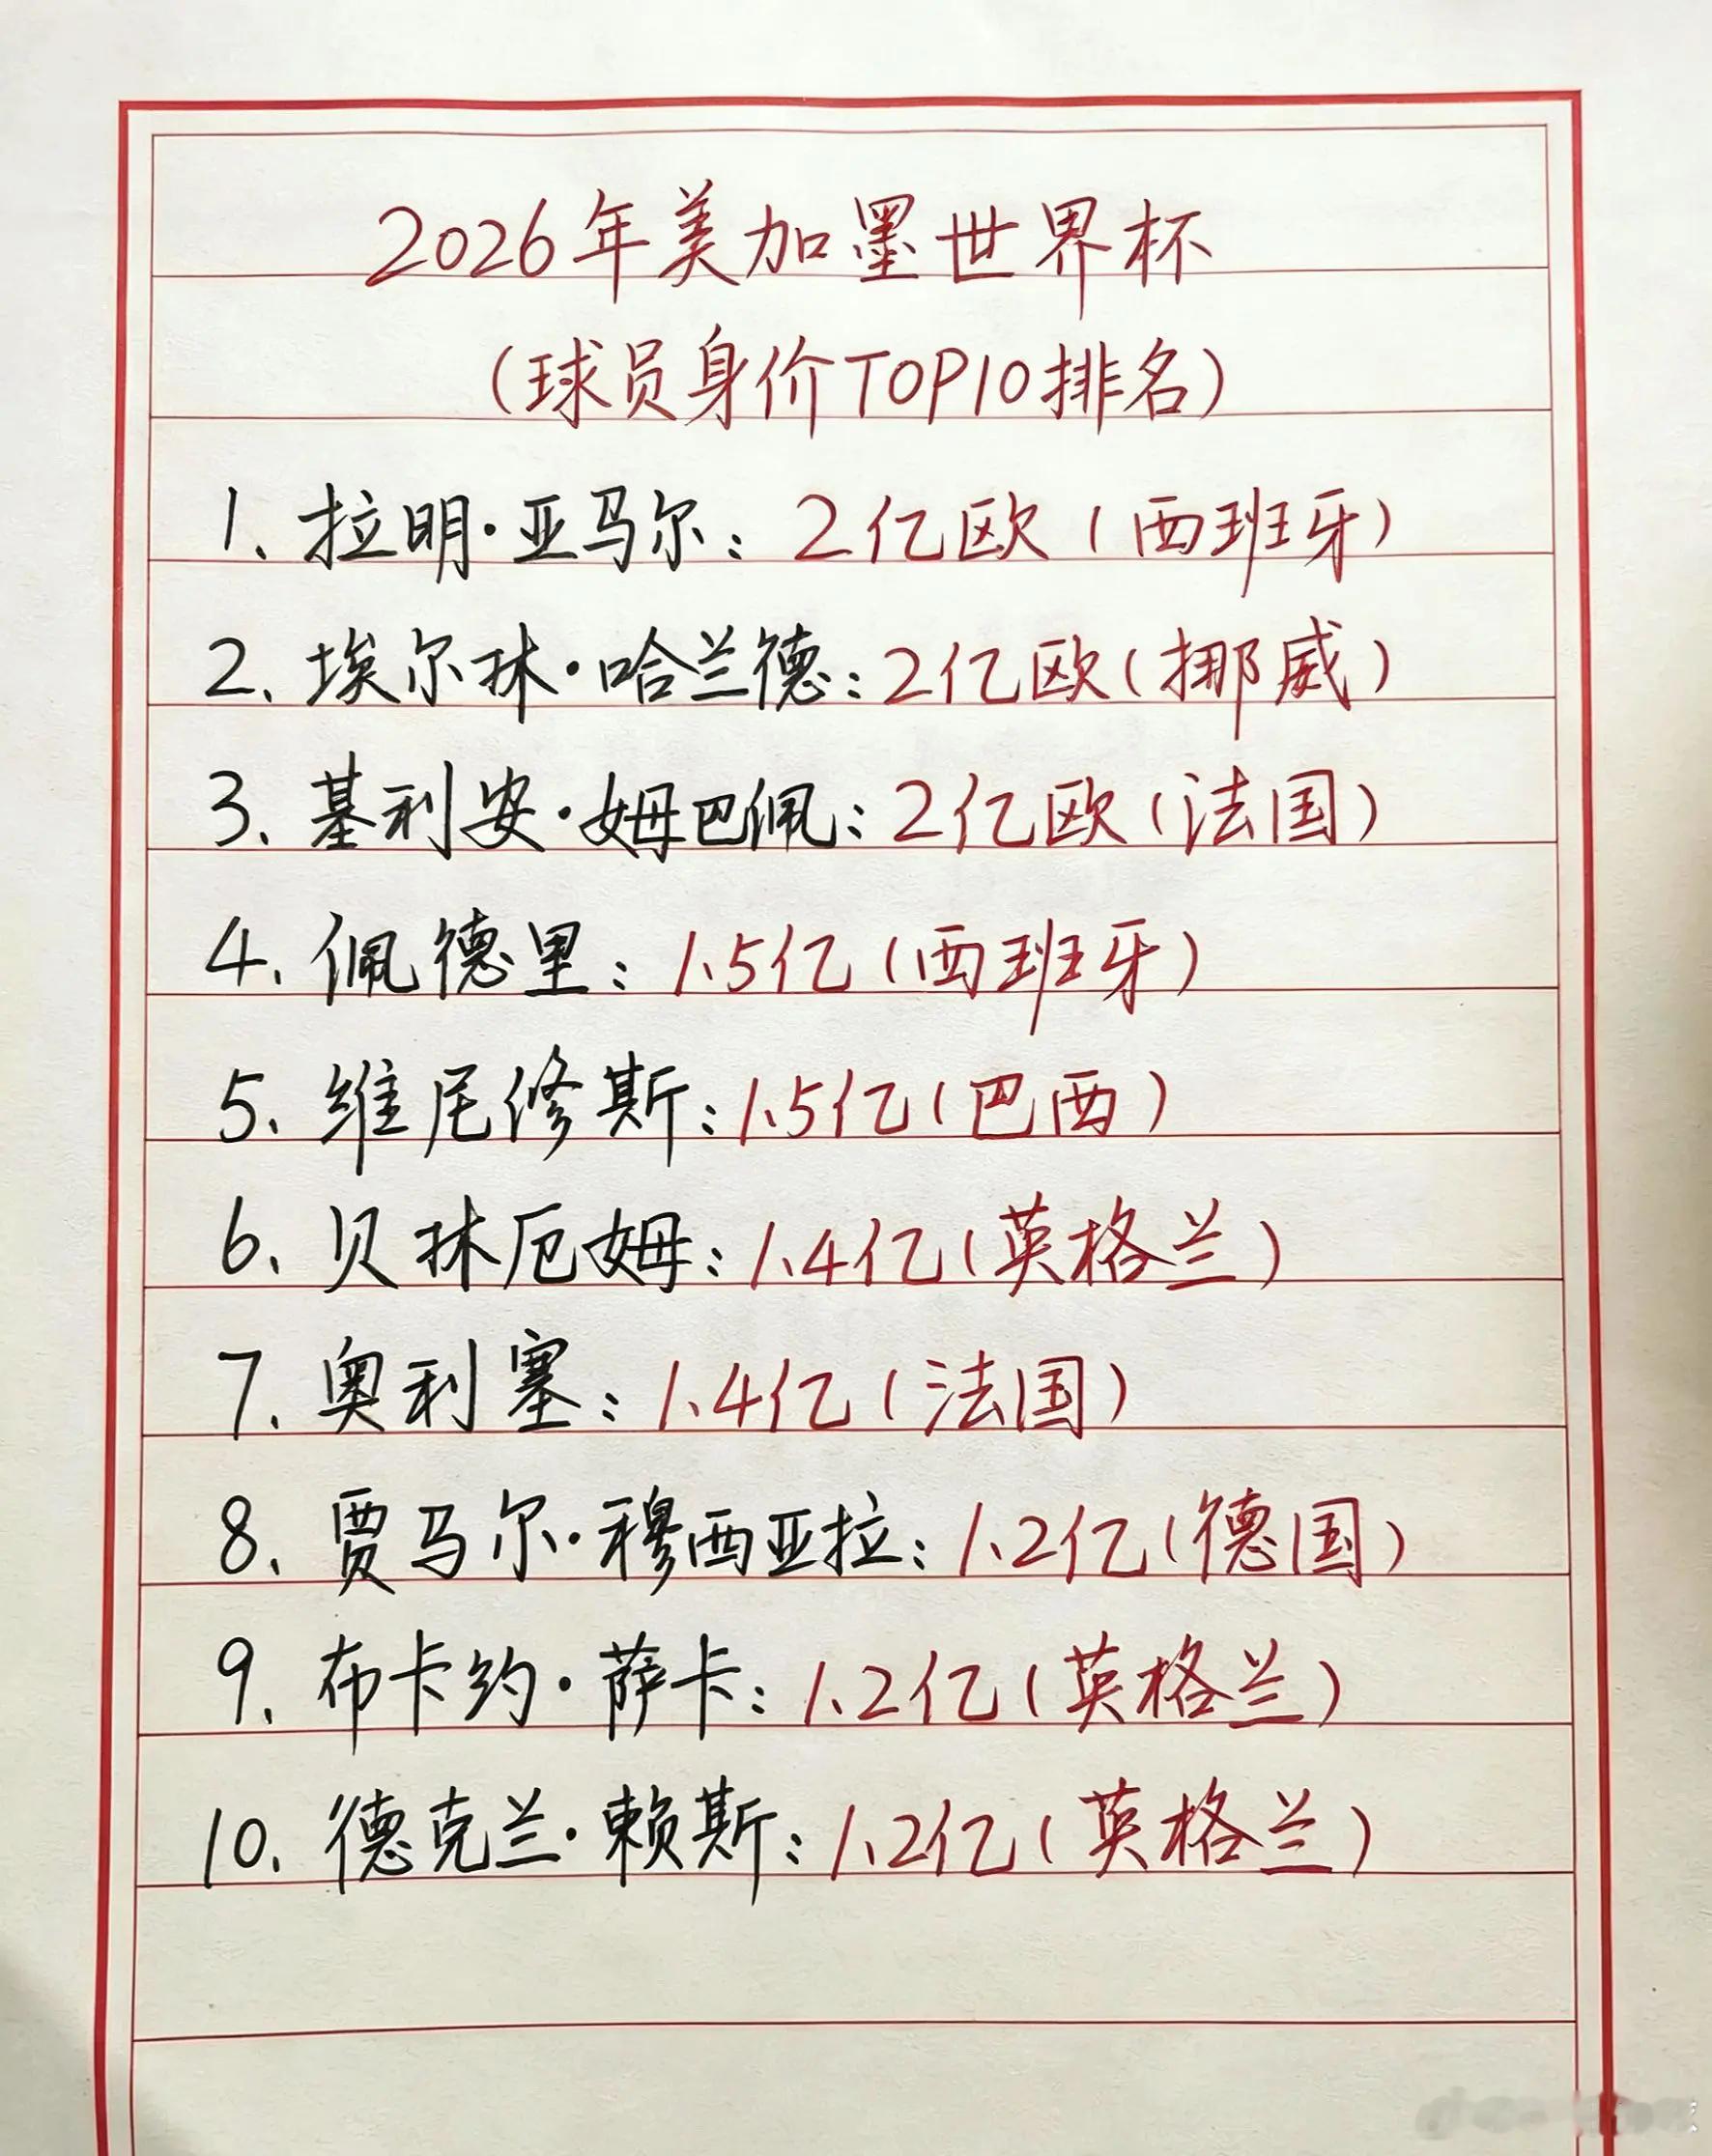 2026年美加墨世界杯
(球员身价TOP10排名)
1、拉明·亚马尔：2亿欧(西班牙)
2、埃尔林·哈兰德：2亿欧(挪威)
3、基利安·姆巴佩：2亿欧(法国)
4、佩德里：1.5亿(西班牙)
5、维尼修斯：1.5亿(巴西)
6、贝林厄姆：1.4亿(英格兰)
7、奥利塞：1.4亿(法国)
8、贾马尔·穆西亚拉：1.2亿(德国)
9、布卡约·萨卡：1.2亿(英格兰)
10、德克兰·赖斯：1.2亿(英格兰)